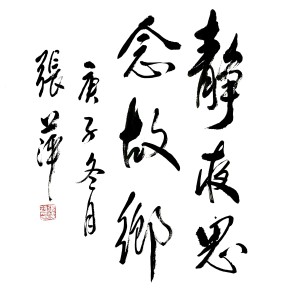 靜夜思
念故鄉
庚子冬月
張萍